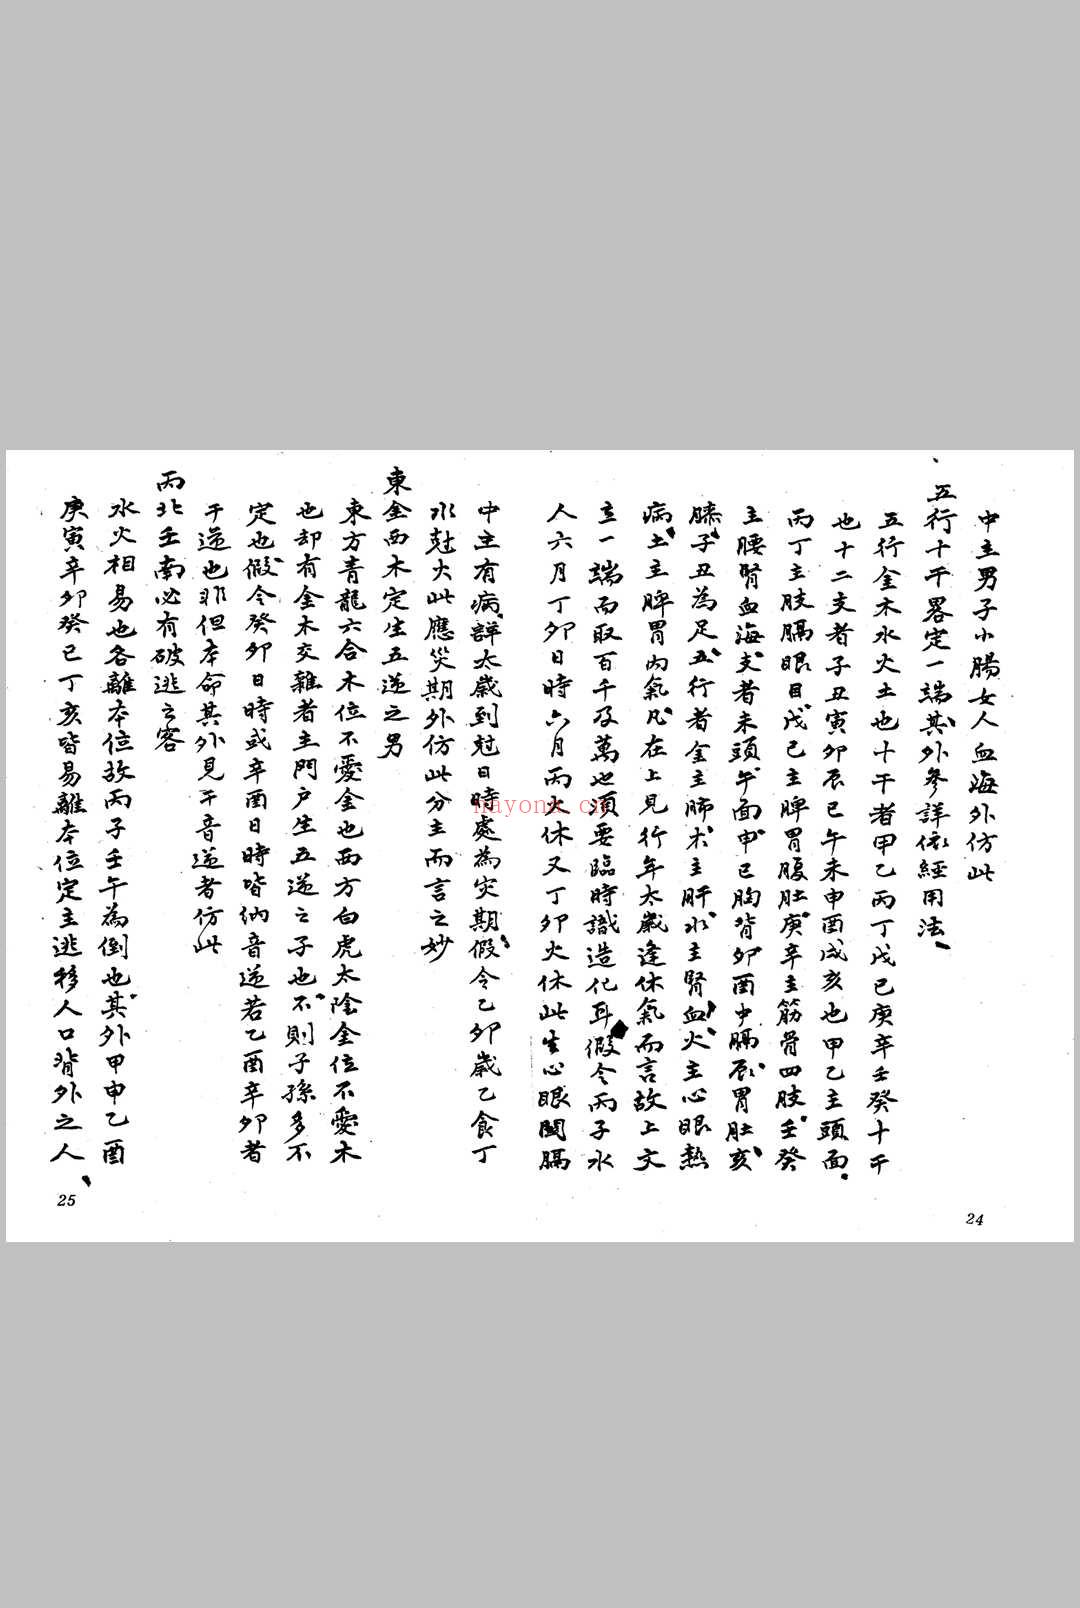 中主男子小腸女人血海外仿此
五行十干畧定一端其外參詳依經用法
五行金木水火土也十干者甲乙丙丁戊己庚辛壬癸十干
也十二支者子丑寅卯辰巳午未申酉戌亥也甲乙主頭面
丙丁主肢膈眼目戊己主脾胃腹肚庚辛主筋骨四肢壬癸
主腰腎血海支者未頭午面申巳胸背卯酉中膈辰胃肚亥
膝子丑為足五行者金主肺木主肝水主腎血火主心眼熱
病土主脾胃内氣凡在上見行年太歲逢休氣而言故上文
立一端而取百千及萬也須要臨時識造化耳假令丙子水
人六月丁卯日時六月丙火休又丁卯火休此生心眼閗膈
中主有病詳太歲到尅日時處為灾期假令乙卯歲乙食丁
水尅火此應災期外仿此分主而言之妙
東金西木定生五逆之男
東方青龍六合木位不愛金也西方白虎太陰金位不愛木
也却有金木交雜者主門户生五逆之子也不則子孫多不
定也假令癸卯日時或辛酉日時皆納音逆若乙酉辛卯者
干逆也非但本命其外見干音逆者仿此
丙北壬南必有破逃之客
水火相易也各離本位故丙子壬午為倒也其外甲申乙酉
庚寅辛卯癸巳丁亥皆易離本位定主逃移人口背外之人
25
24
nayona.cn